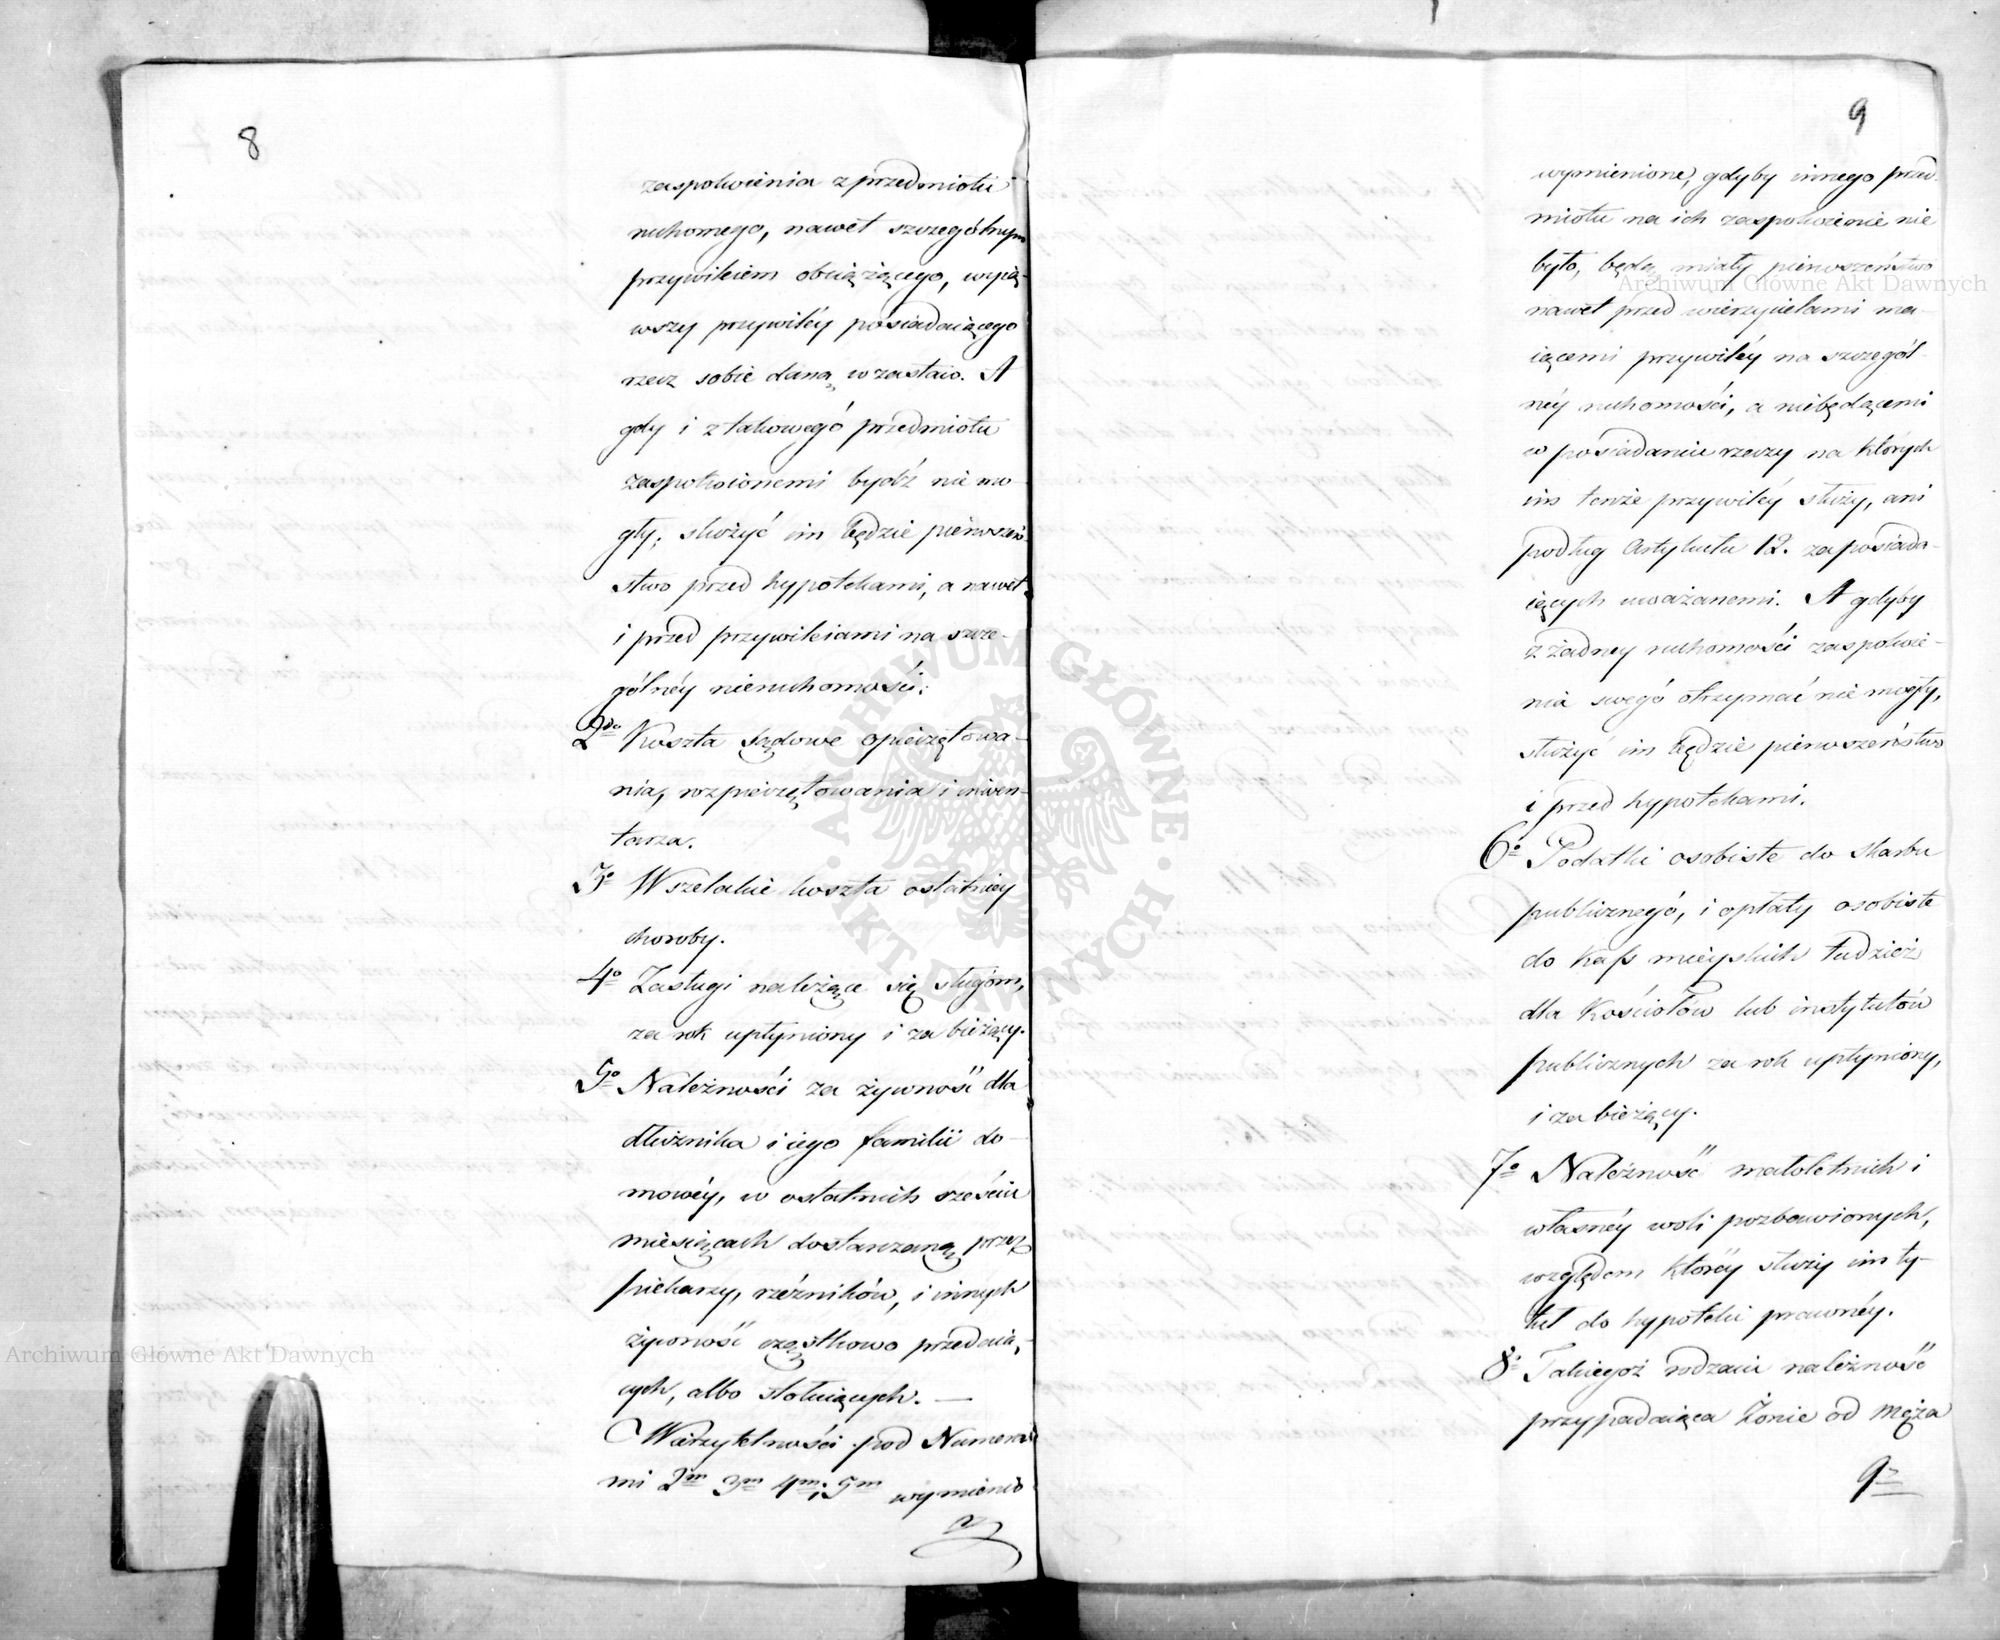 8
zaspokoienia z przedmiotu
ruchomego, nawet szczególnym
przywileiem obciążącego, wyią-
wszy przywiléy posiadaiącego
rzecz sobie daną w zastaw. A
gdy i z takowego przedmiotu
zaspokoionemi bydź nie mo-
gły, służyć im będzie pierwszeń-
stwo przed hypotekami, a nawet
i przed przywileiami na szcze-
gólnéy nieruchomości.
2do Koszta sądowe opieczętowa-
nia, rozpieczętowania i inwen-
tarza.
3o Wszelakie koszta ostatniey
choroby.
4o Zasługi należące się sługom,
za rok upłyniony i za bieżący.
5o Należności za żywność dla
dłużnika i iego familii do-
mowéy, w ostatnich sześciu
miesiącach dostarczaną przez
piekarzy, rzéźników, i innych
żywność cząstkowo przedaią-
cych, albo stołuiących. —
Wierzytelności pod Numera-
mi 2m 3m 4m i 5m wymienio-
9
wymienione, gdyby innego przed-
miotu na ich zaspokoienie nie
było, będą miały pierwszeństwo
nawet przed wierzycielami ma-
iącemi przywiléy na szczegól-
néy ruchomości, a niebędącemi
w posiadaniu rzeczy na których
im tenże przywiléy służy, ani
podług Artykułu 12. za posiada-
iących uważanemi. A gdyby
z żadney ruchomości zaspokoie-
nia swego otrzymać nie mogły,
służyć im będzie pierwszeństwo
i przed hypotekami.
6o Podatki osobiste do skarbu
publicznego, i opłaty osobiste
do Kass mieyskich tudzież
dla Kościołów lub instytutów
publicznych za rok upłyniony,
i za bieżący.
7o Należność małoletnich i
własnéy woli pozbawionych,
względem któréy służy im ty-
tuł do hypoteki prawnéy.
8o Takiegoż rodzaiu należność
przypadaiąca Żonie od Męża
9o
Archiwum Główne Akt Dawnych
Archiwum Główne Akt Dawnych
ARCHIWUM GŁÓWNE AKT DAWNYCH